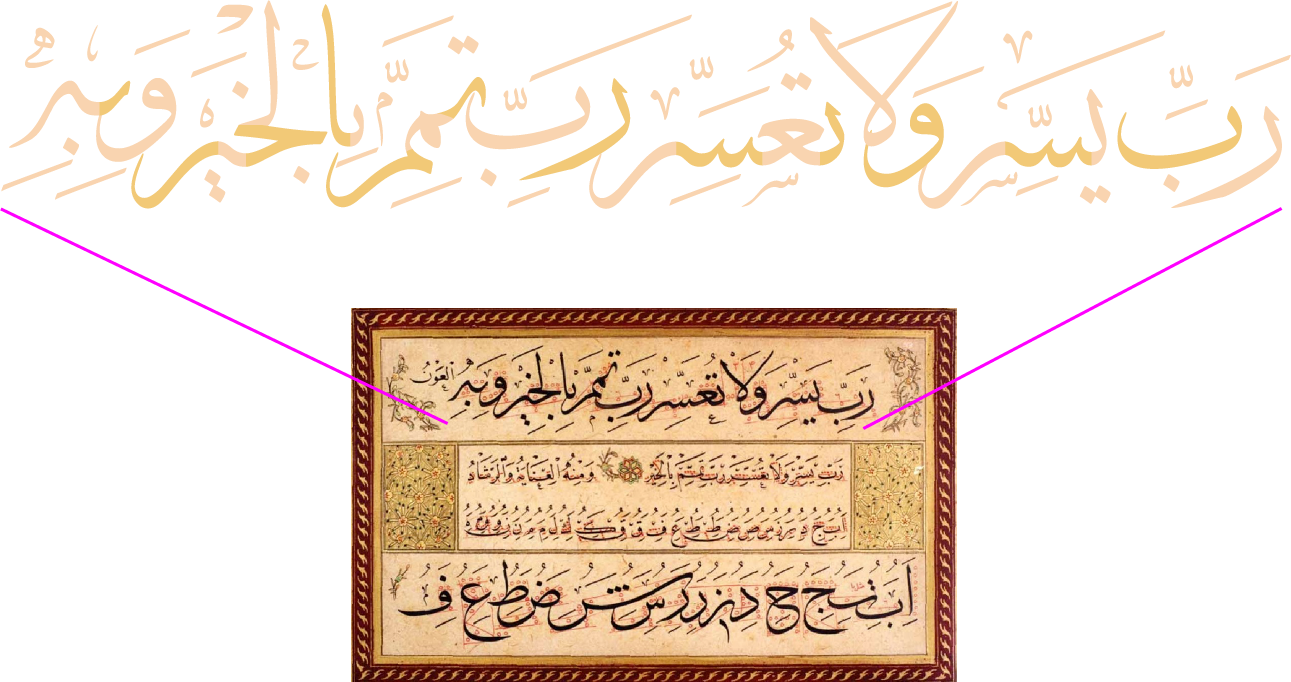 رَبِّ يَسِّرْ وَلَا تُعَسِّرْ رَبِّ تَمِّمْ بِالْخَيْرِ وَبِهِ
رَبِّ يَسِّرْ وَلَا تُعَسِّرْ رَبِّ تَمِّمْ بِالْخَيْرِ وَبِهِ الْعَوْنُ
رَبِّ يَسِّرْ وَلَا تُعَسِّرْ رَبِّ تَمِّمْ بِالْخَيْرِ وَمِنْهُ الْعِنَايَةُ وَالْرَشَادُ
ا ب ج د ر س ص ط ع ف ق ك ل م ن و ه
ا ب ت ج ح د ر ز س ش ض ط ع ف